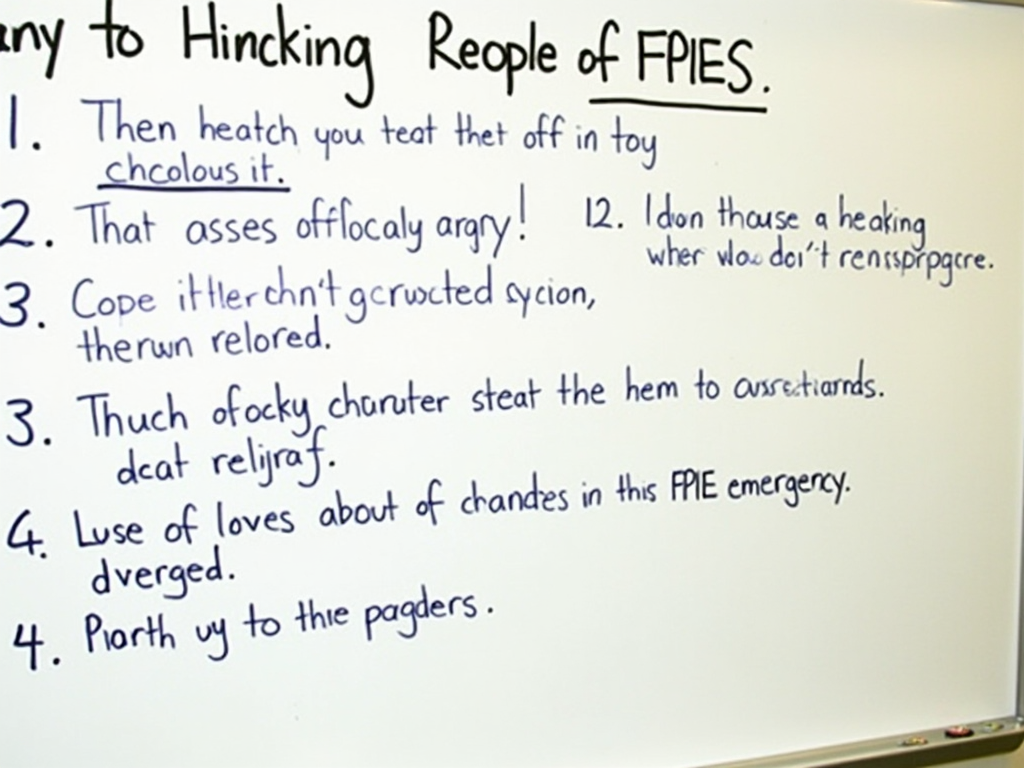 any to Hincking Reople of FPIES.
1. Then heatch you teat thet off in toy
chcolous it.
2. That asses offlocaly argry!
12. Idon thause a heaking
wher doi't renssprpgcre.
3. Cope ittlerchn't gcrwcted sycion,
therwn relored.
3. Thuch ofocky charuter steat the hem to
dcat relijraf.
4. Luse of loves about of chandes in this FPIE emergency.
dverged.
4. Piorth uy to thie pagders.